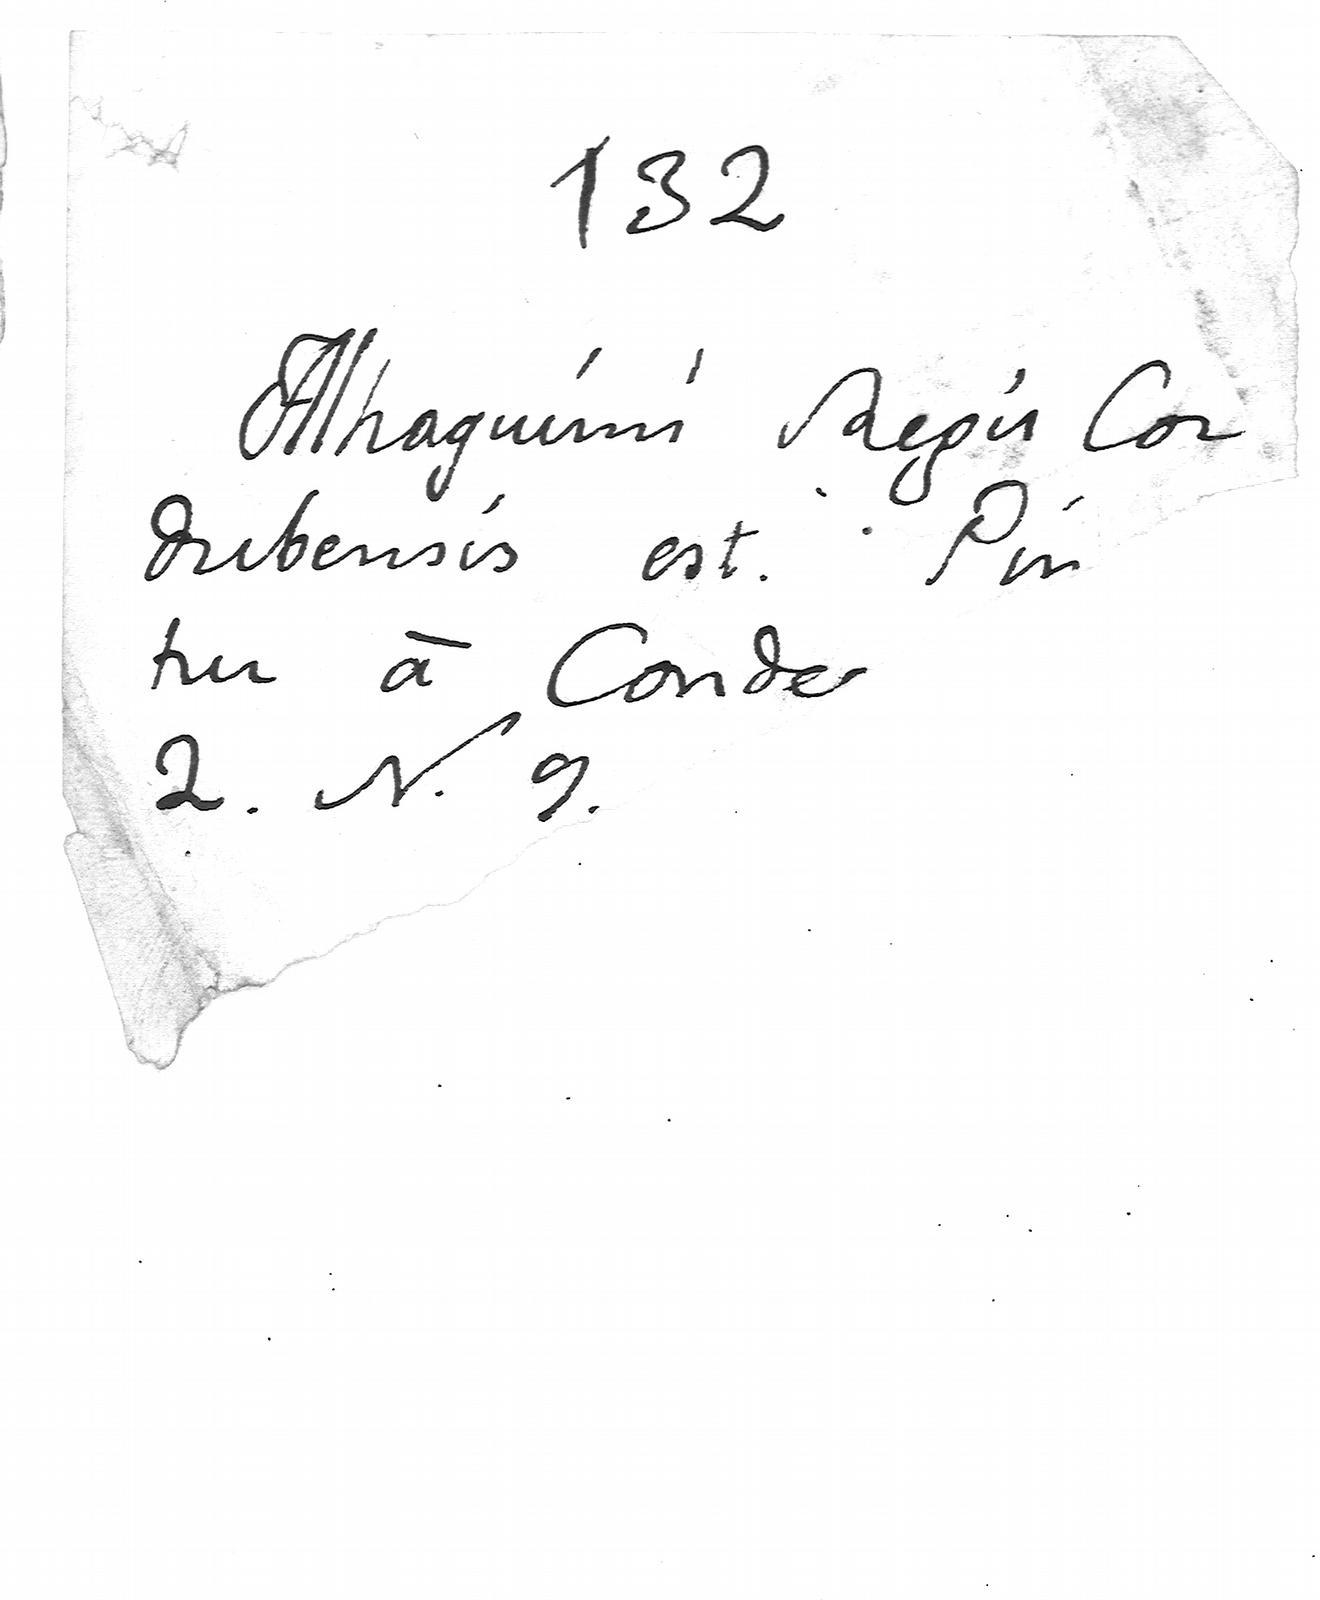 132
Alhaquimi Regis Cor
dubensis est. Pin
tur à Conde
2. N. 9.